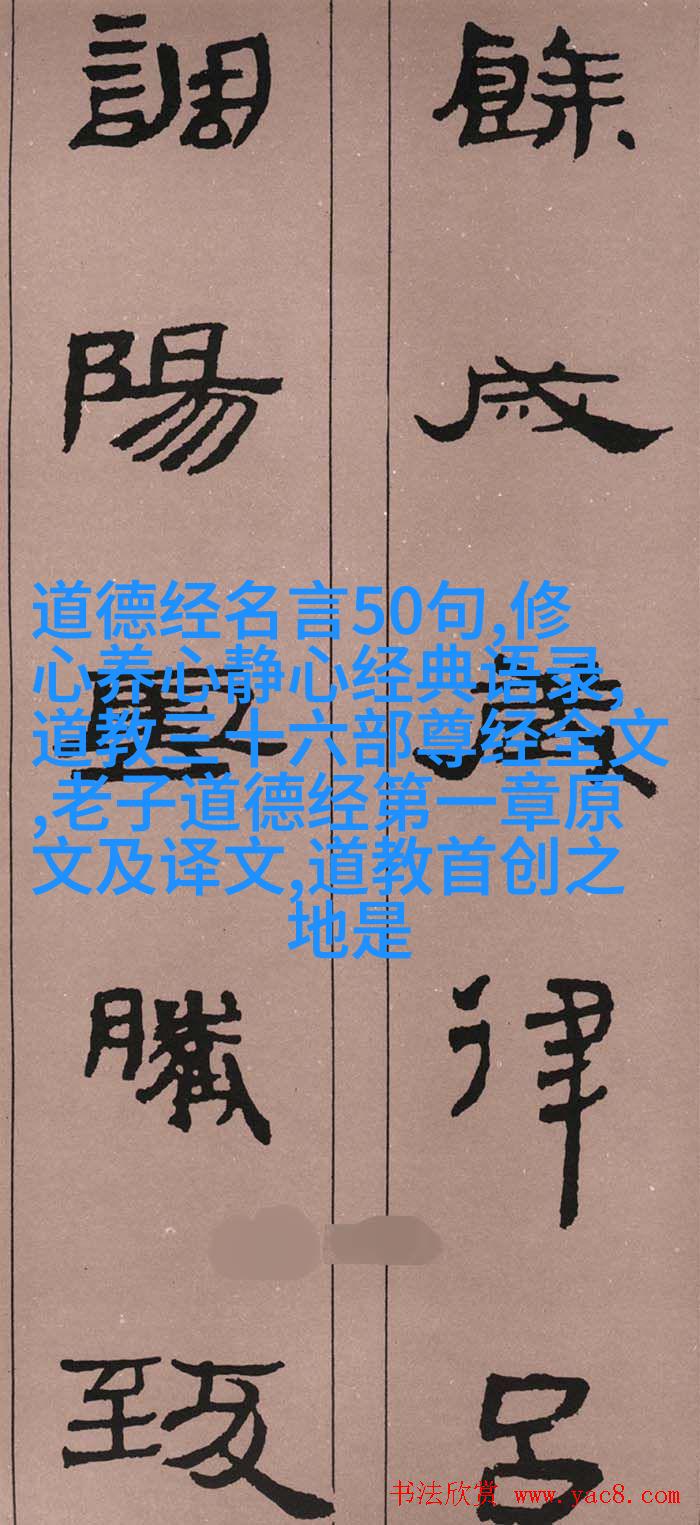 餘成歲律呂
調陽雲騰致
道德经名言50句,修
心养心静心经典语录,
道教三十六部尊经全文
,老子道德经第一章原
文及译文,道教首创之
地是
书法欣赏 www.yac8.com